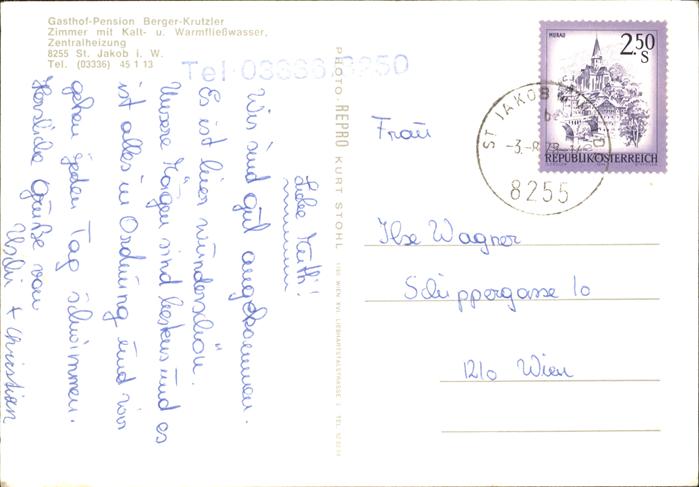 Gasthof-Pension Berger-Krutzler
Zimmer mit Kalt- u. Warmfließwasser,
Zentralheizung
8255 St. Jakob i. W.
Tel. (03336) 45 1 13
Tel. 03336/8250
Liebe Mutti!
Wir sind gut angekommen.
Es ist hier wunderschön.
Unsere Mägen sind bestens und es
ist alles in Ordnung und wir
gehen jeden Tag schwimmen.
Herzliche Grüße von
Uschi + Christian
PHOTO-REPRO KURT STOHL
1160 WIEN XVI, LIEBHARTSTALSTRASSE
MURAU
2.50
S
REPUBLIK ÖSTERREICH
ST. JAKOB
-3.-8.79
8255
Frau
Ilse Wagner
Schippergasse 10
1210 Wien